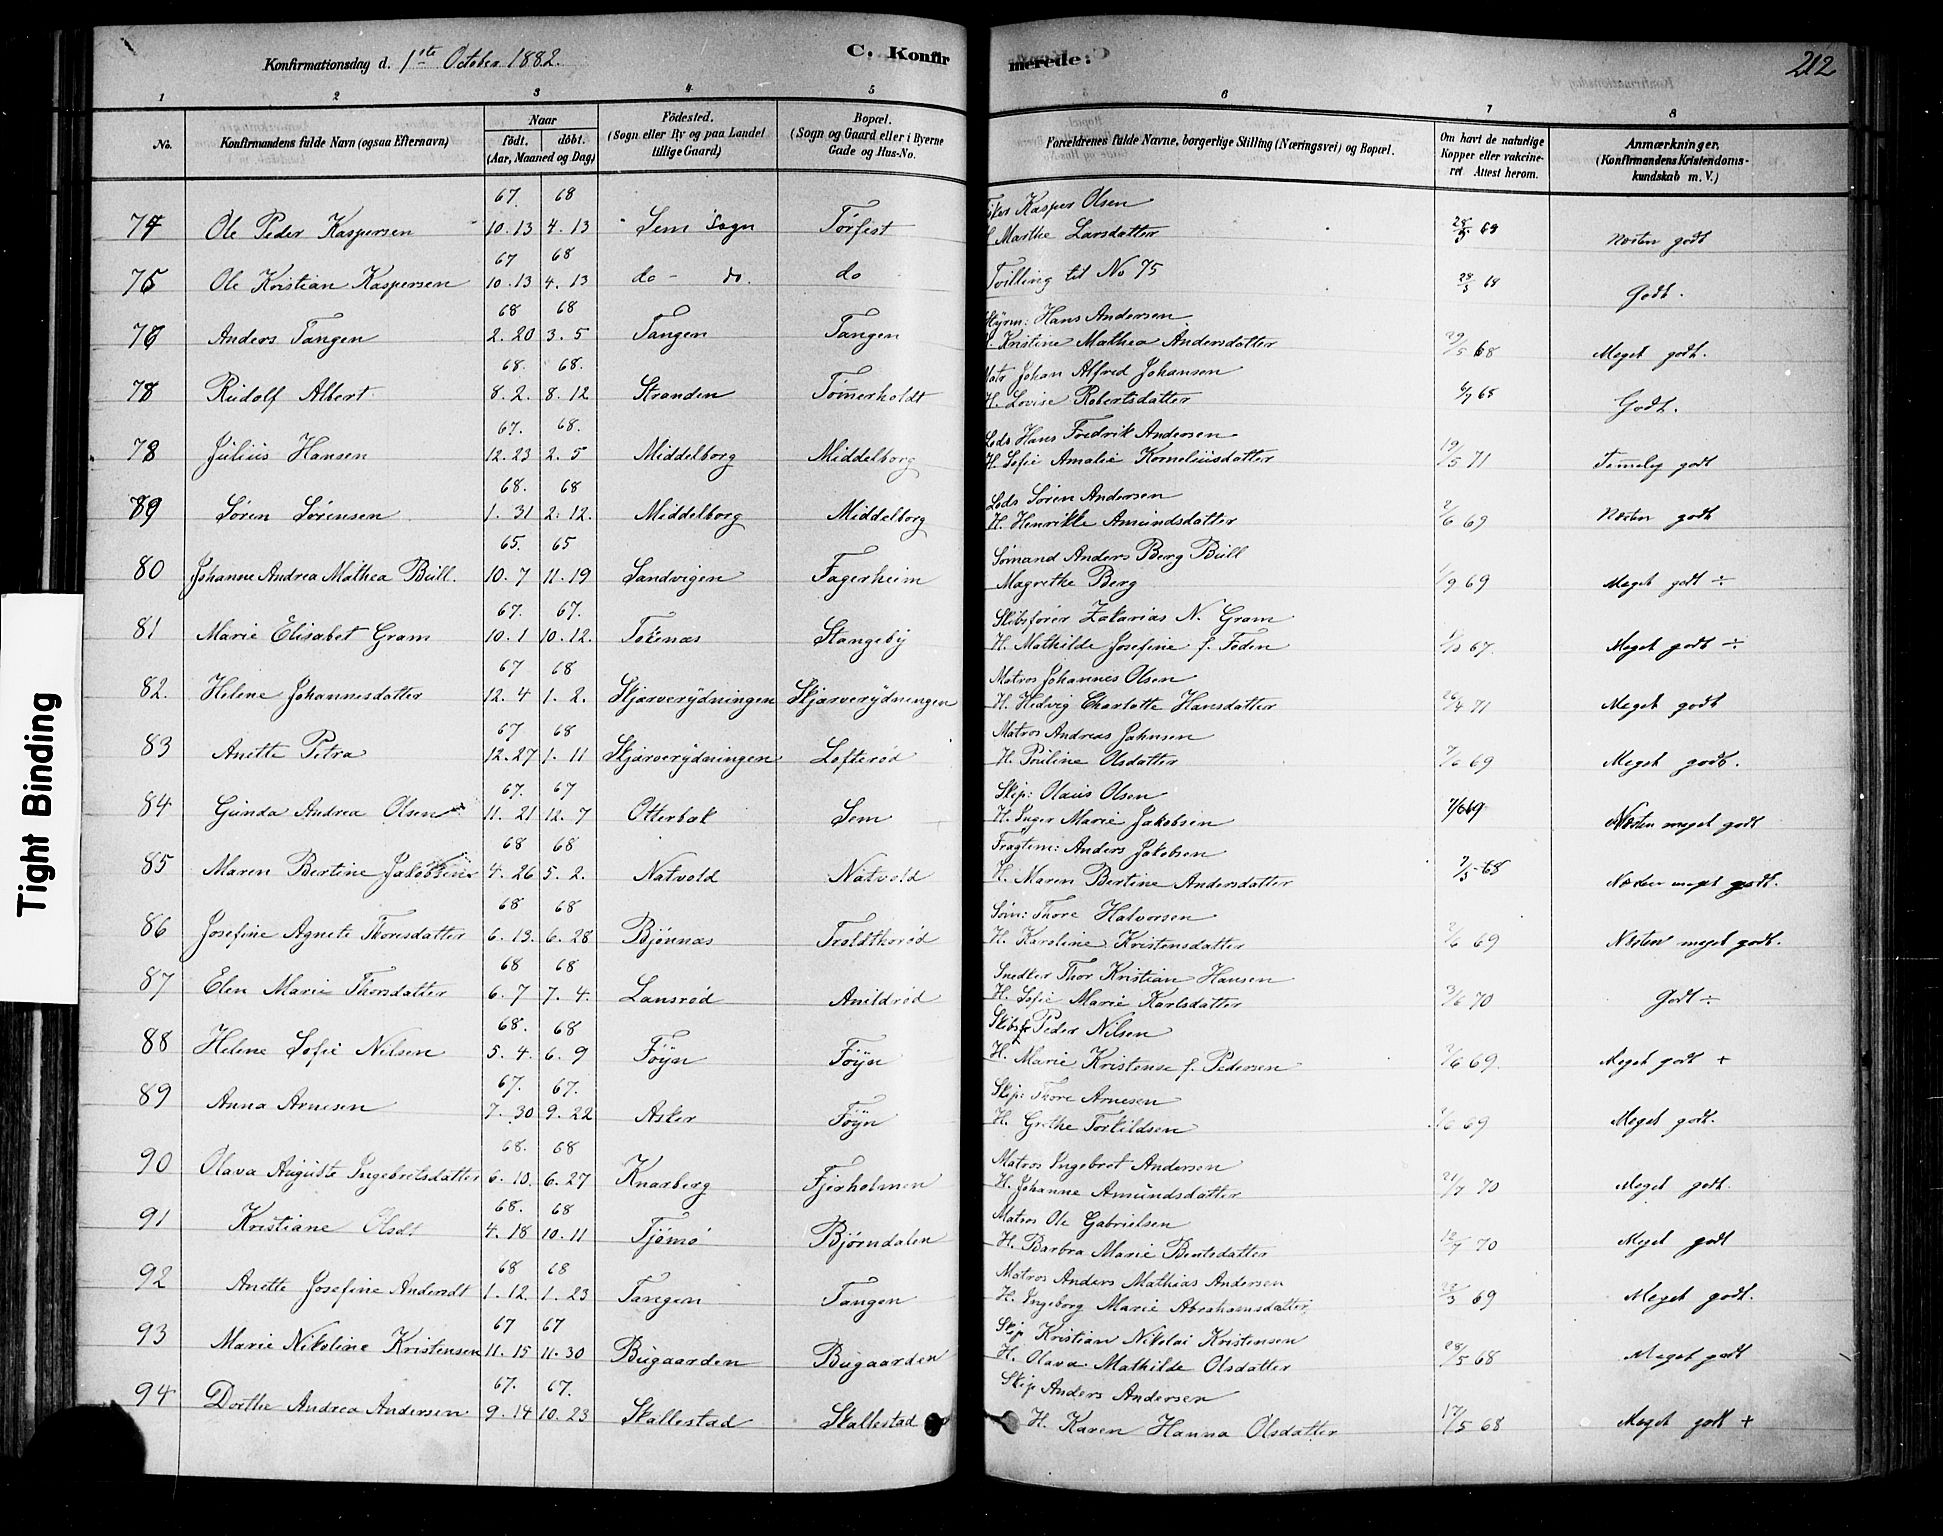 Konfirmationsdag d. 1ste October 1882.
C. Konfir
merede:
212
1 2 3 4 5 6 7 8
No. Konfirmandens fulde Navn (ogsaa Efternavn) Naar født. døbt. (Aar, Maaned og Dag) Fødested. (Sogn eller By og paa Landet tillige Gaard) Bopæl. (Sogn og Gaard eller i Byerne Gade og Hus-No. Forældrenes fulde Navne, borgerlige Stilling (Næringsvei) og Bopæl. Om havt de naturlige Kopper eller vakcineret Attest herom. Anmærkninger. (Konfirmandens Kristendomskundskab m. V.)
67. 68 Kasper Olsen
74 Ole Peder Kaspersen 10.13 4.13 Sem Sogn Tørfest H. Marthe Larsdatter 28/5 69 Næsten godt
67 68
75 Ole Kristian Kaspersen 10.13 4.13 do - do. do Tvilling til No 75 28/5 68 Godt.
68 68 Styrm: Hans Andersen
76 Anders Tangen 2.20 3.5 Tangen Tangen H. Kristine Mathea Andersdatter 29/5 68 Meget godt.
68. 68. Matr Johan Alfred Johansen
78 Rudolf Albert 8.2. 8.12 Stranden Tømerholdt H. Lovise Robertsdatter 6/7 68 Godt.
67. 68. Lods Hans Fredrik Andersen
78 Julius Hansen 12.23 2.5 Middelborg Middelborg H. Sofie Amalie Korneliusdatter 19/5 71 Temelig godt
68. 68 Lods Søren Andersen
79 Søren Sørensen 1.31 2.12. Middelborg Middelborg H. Henrikke Amundsdatter 2/6 69 Næsten godt
65. 65 Sømand Anders Berg Bull
80 Johanne Andrea Mathea Bull. 10.7 11.19 Sandvigen Fagerheim Magrethe Berg 1/9 69 Meget godt ÷
67. 67. Skibsfører Zakarias N. Gram
81 Marie Elisabet Gram 10.1 10.12. Tokenæs Stangeby H. Mathilde Josefine f. Foden 67. Meget godt ÷
67 68 Matros Johannes Olsen
82. Helene Johannesdatter 12.4 1.2. Skjærverydningen Skjærverydningen H. Hedvig Charlotte Hansdatter 26/4 71 Meget godt
67 68 Matros Andreas Johnsen
83 Anette Petra 12.27 1.11 Skjærverydningen Lofterød H. Pouline Olsdatter 7/6 69 Meget godt.
67. 67 Skip: Olaus Olsen
84 Gunda Andrea Olsen 11.21 12.7 Otterbæk Sem H. Inger Marie Jakobsen 7/6 69 Næsten meget godt
68 68 Fragtem: Anders Jakobsen
85 Maren Bertine Jakobsen 4.26 5.2. Natvold Natvold H. Maren Bertine Andersdatter 7/5 68 Næsten meget godt.
68 68 Søm: Thore Halvorsen
86 Josefine Agnete Thoresdatter 6.13. 6.28 Bjønnæs Troldthorød H. Karoline Kristensdatter 2/6 69 Næsten meget godt.
68 68 Snedker Thor Kristian Hansen
87 Elen Marie Thorsdatter 6.7 7.4. Lansrød Anildrød H. Sofie Marie Karlsdatter 3/6 70 Godt ÷
68. 68 Skibsf Peder Nilsen
88 Helene Sofie Nilsen 5.4. 6.9 Føyn Føyn H. Marie Kristense f. Pedersen 2/6 69. Meget godt +
67. 67. Skip: Thore Arnesen
89 Anna Arnesen 7.30 9.22 Asker Føyn H. Grethe Torkildsen 1/6 69 Meget godt.
68. 68 Matros Ingebret Andersen
90 Olava Auguste Ingebretsdatter 6.10. 6.27 Knarberg Fjerholmen H. Johanne Amundsdatter 21/7 70 Meget godt.
68. 68 Matros Ole Gabrielsen
91 Kristiane Olsdt 4.18 10.11 Tjømø Bjørndalen H. Barbra Marie Berntsdatter 12/7 70 Meget godt
68 68 Matros Anders Mathias Andersen
92 Anette Josefine Andersdt 1.12. 1.23 Tangen Tangen H. Ingeborg Marie Abrahamsdatter 22/3 69 Meget godt.
67 67 Skip Kristian Nikolai Kristensen
93 Marie Nikoline Kristensen 11.15 11.30 Bugaarden Bugaarden H. Olava Mathilde Olsdatter 28/5 68 Meget godt
67. 67. Skip Anders Andersen
94 Dorthe Andrea Andersen 9.14 10.23 Skallestad Skallestad H. Karen Hanna Olsdatter 17/5 68 Meget godt +
Tight Binding